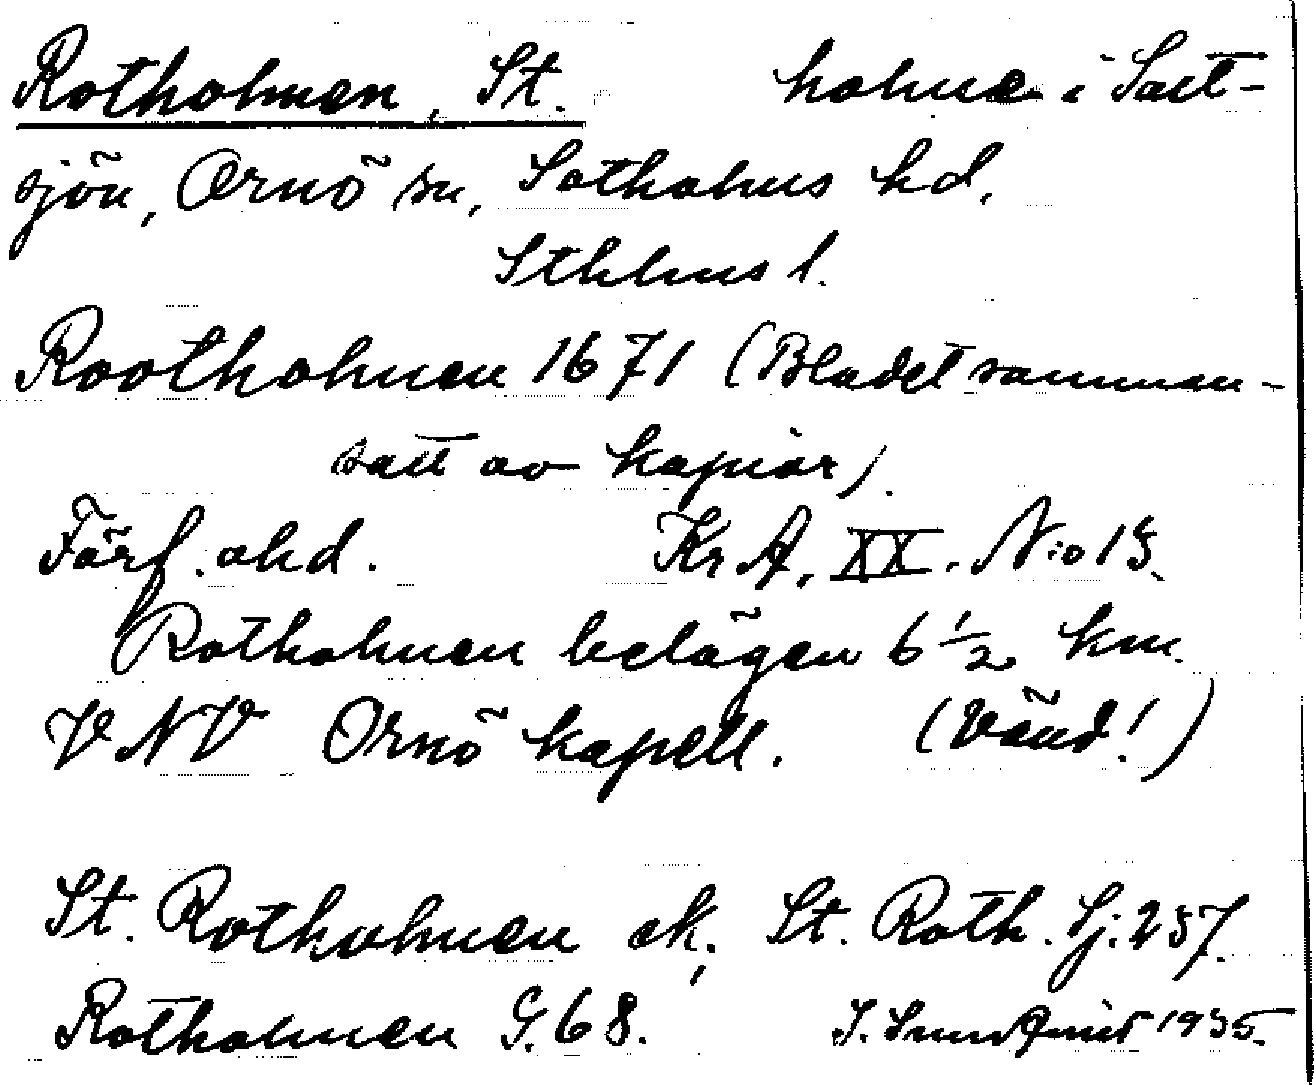 Rotholmen, St. holme i Salt-
sjön, Ornö sn, Sotholms hd,
Sthlms l.
Rootholmen 1671 (Bladet samman-
satt av kopior).
Förf. okd. Kr A. XX. N:o 13.
Rotholmen belägen 6 1/2 km
VNV Ornö kapell. (Vänd!)
St. Rotholmen ek, St. Roth. Sj. 257.
Rotholmen G. 68. 1935.